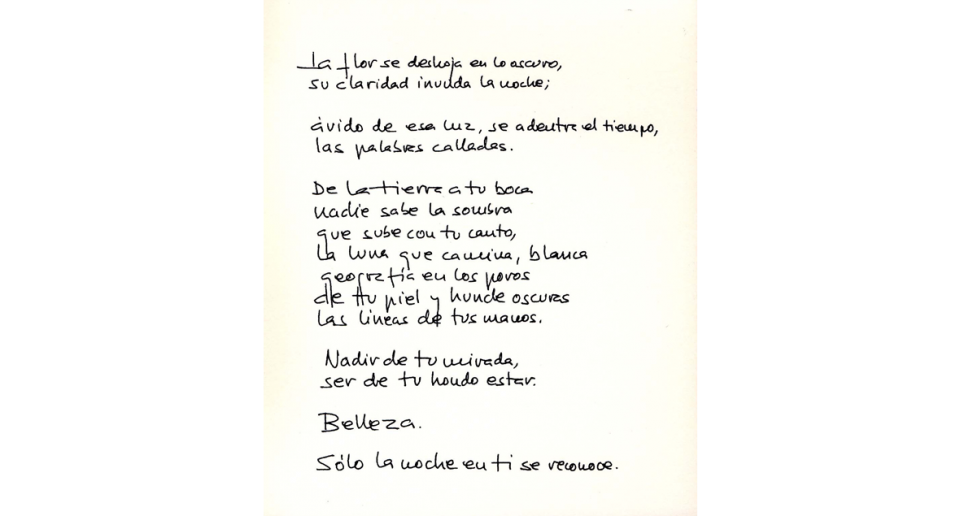 La flor se deshoja en lo oscuro,
su claridad inunda la noche;
ávido de esa luz, se adentra el tiempo,
las palabras calladas.
De la tierra a tu boca
nadie sabe la sombra
que sube con tu canto,
la luna que camina, blanca
geografía en los poros
de tu piel y hunde oscuras
las líneas de tus manos.
Nadir de tu mirada,
ser de tu hondo estar.
Belleza.
Sólo la noche en ti se reconoce.